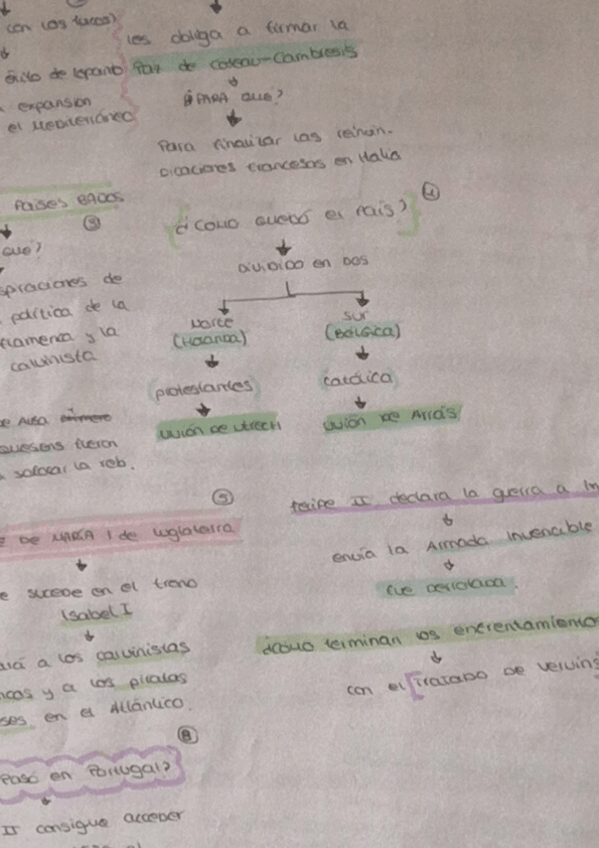 con los turcos)
éxito de Lepanto
expansión
el Mediterráneo
les obliga a firmar la
Paz de Cateau-Cambresis
¿PARA QUÉ?
Para finalizar las reivin-
dicaciones francesas en Italia
PAISES BAJOS
③
que?
spiraciones de
política de la
flamenca y la
calvinista
de Alba
quesens fueron
sofocar la reb.
④
¿como quedó el país?
Dividido en dos
Norte
(Holanda)
protestantes
Unión de Utrecht
Sur
(Bélgica)
católica
Unión de Arrás
⑤
E DE MARÍA I de Inglaterra
e sucede en el trono
Isabel I
a los calvinistas
y a los piratas
ses en el Atlántico.
Felipe II declara la guerra a
envía la Armada Invencible
fue derrotada.
¿como terminan los enfrentamiento
con el Tratado de Vervins
⑧
Pasó en Portugal?
II consigue acceder